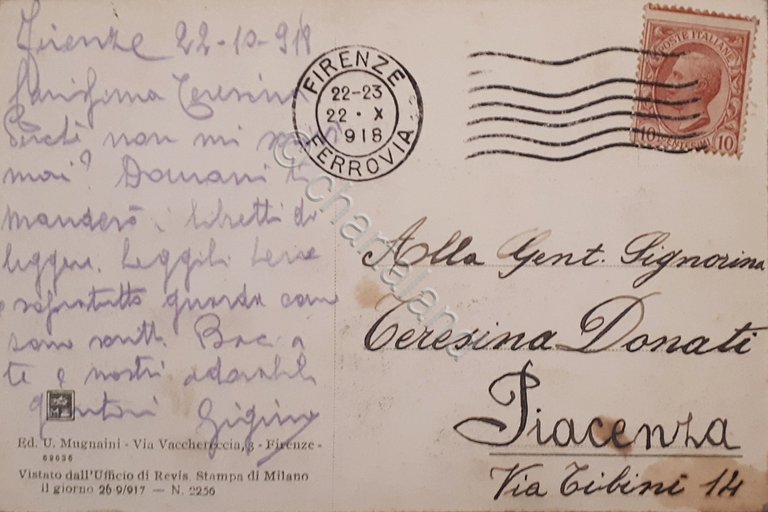 Firenze 22-10-918
Carissima Teresina
Perchè non mi
mai? Domani ti
manderò i libretti da
leggere. Leggili bene
e sopratutto guarda come
sono scritti. Baci a
te e nostri adorabili
genitori Gigino
Ed. U. Mugnaini - Via Vacchereccia, 3 - Firenze -
69636
Vistato dall'Ufficio di Revis. Stampa di Milano
il giorno 26-9/917 — N. 2256
FIRENZE
22-23
22 · X
918
FERROVIA
POSTE ITALIANE
10 10
Alla Gent. Signorina
Teresina Donati
Piacenza
Via Tibini 14
© chartaland